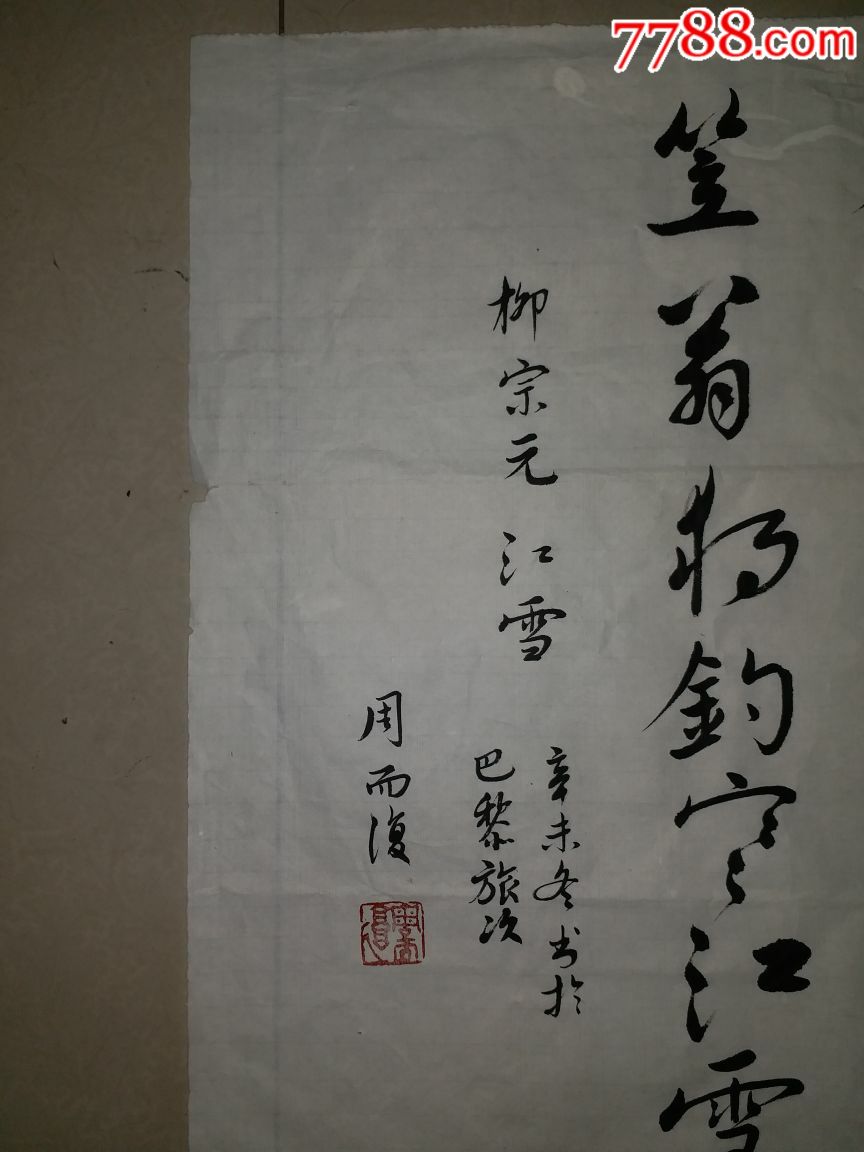 7788.com
笠翁獨釣寒江雪
柳宗元 江雪
辛未冬书於
巴黎旅次
周而復